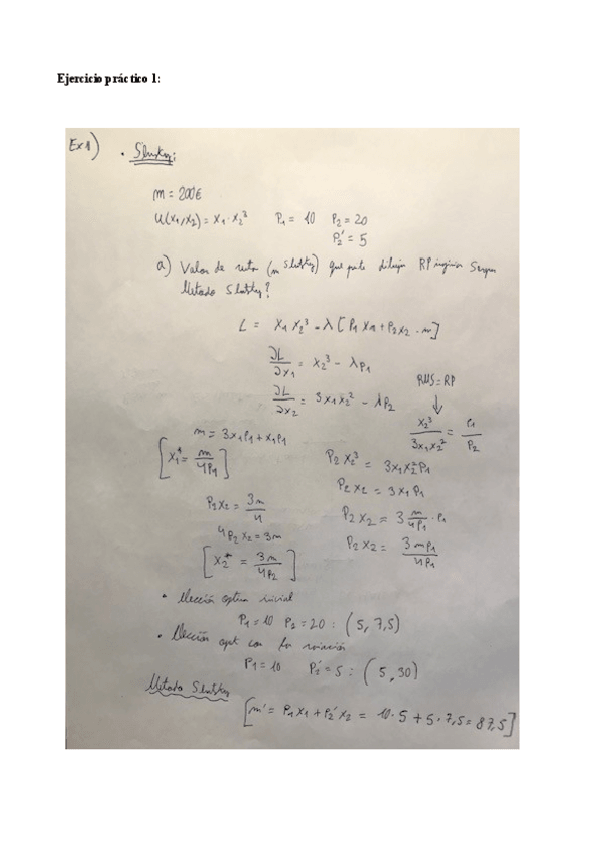 Ejercicio práctico 1:
Ex 1) • Slutky:
m = 200€
U(x1, x2) = x1 · x2³ P1 = 10 P2 = 20
P2' = 5
a) Valor de renta (m Slutsky) que permite dibujar RP imaginaria según
Método Slutsky?
L = x1 x2³ - λ [P1 x1 + P2 x2 - m]
∂L/∂x1 = x2³ - λP1
RMS = RP
∂L/∂x2 = 3x1 x2² - λP2
↓
x2³/3x1x2² = P1/P2
m = 3x1P1 + x1P1
[x1* = m/4P1]
P2 x2³ = 3x1x2²P1
P2 x2 = 3x1P1
P2x2 = 3m/4
P2 x2 = 3 m/4P1 · P1
4P2x2 = 3m
P2 x2 = 3mP1/4P1
[x2* = 3m/4P2]
• Elección optima inicial
P1 = 10 P2 = 20 : (5, 7,5)
• Elección opt con la variación
P1 = 10 P2' = 5 : (5, 30)
Método Slutsky
[m' = P1 x1 + P2' x2 = 10·5 + 5·7,5 = 87,5]